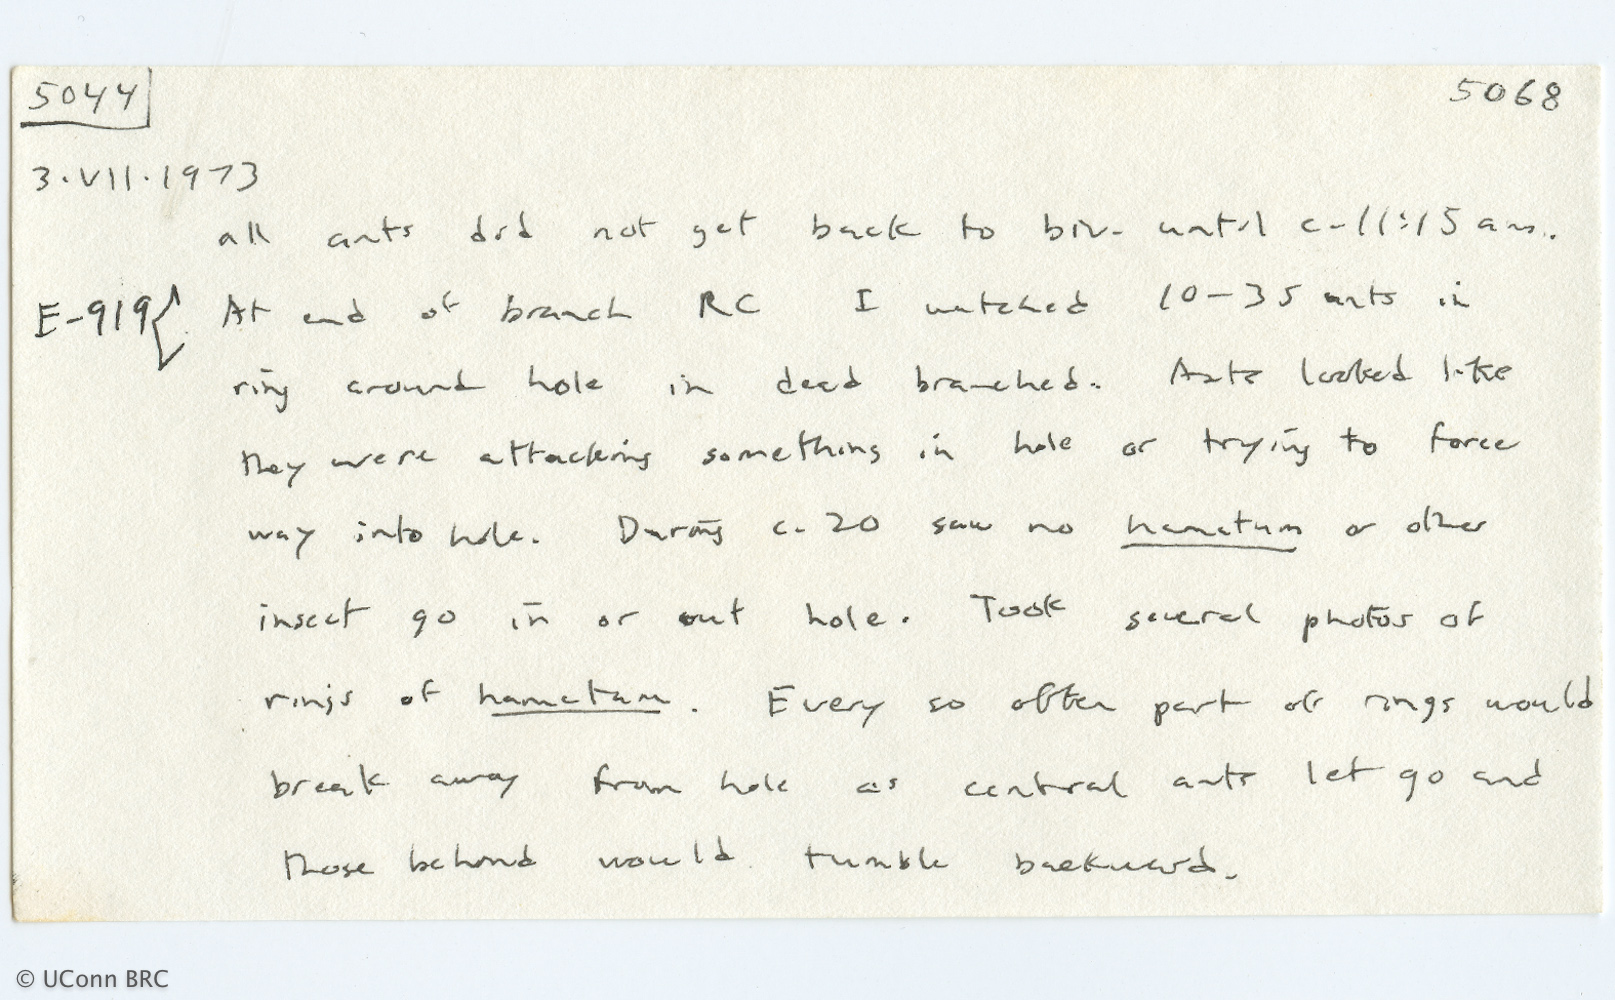 5044 5068
3.VII.1973
all ants did not get back to biv. until c-11:15 am.
E-919{ At end of branch RC I watched 10-35 ants in
ring around hole in dead branched. Ants looked like
they were attacking something in hole or trying to force
way into hole. During c. 20 saw no hamatum or other
insect go in or out hole. Took several photos of
rings of hamatum. Every so often part of rings would
break away from hole as central ants let go and
those behind would tumble backward.
© UConn BRC